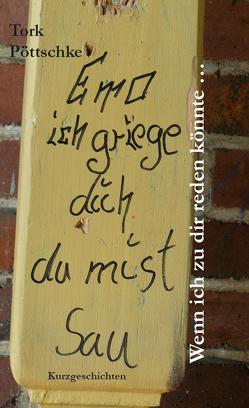 Tork
Pöttschke
Emo
ich griege
dich
du mist
Sau
Wenn ich zu dir reden könnte ...
Kurzgeschichten